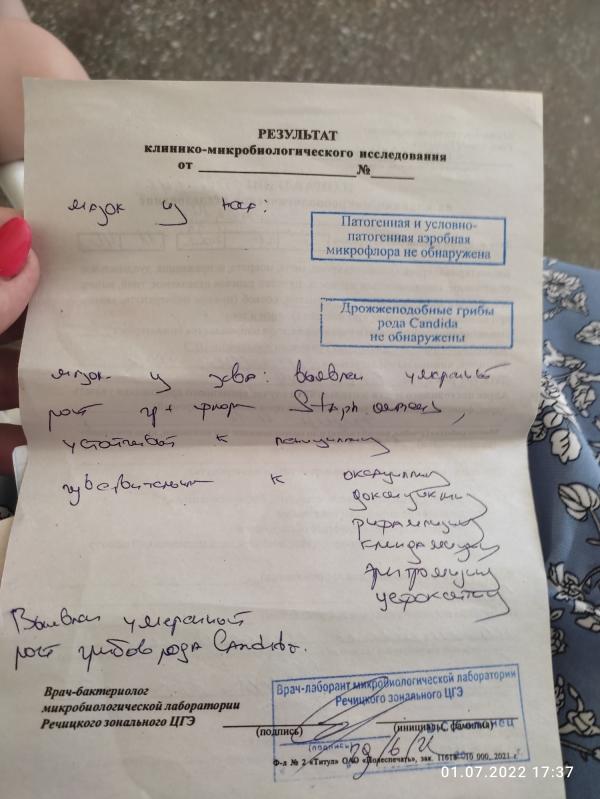 РЕЗУЛЬТАТ
клинико-микробиологического исследования
от №
мазок из носа:
Патогенная и условно-
патогенная аэробная
микрофлора не обнаружена
Дрожжеподобные грибы
рода Candida
не обнаружены
мазок из зева: выявлен умеренный
рост гр+ флоры Staph. aureus,
устойчивый к пенициллину
чувствительный к оксациллину
доксициклину
рифампицину
клиндамицину
эритромицину
цефокситину
Выявлен умеренный
рост грибов рода Candida.
Врач-бактериолог
микробиологической лаборатории
Речицкого зонального ЦГЭ
(подпись)
(инициалы, фамилия)
Врач-лаборант микробиологической лаборатории
Речицкого зонального ЦГЭ
(подпись)
Ф-л № 2 «Титул» ОАО «Полеспечать», зак. 10 000, 2021 г.
01.07.2022 17:37